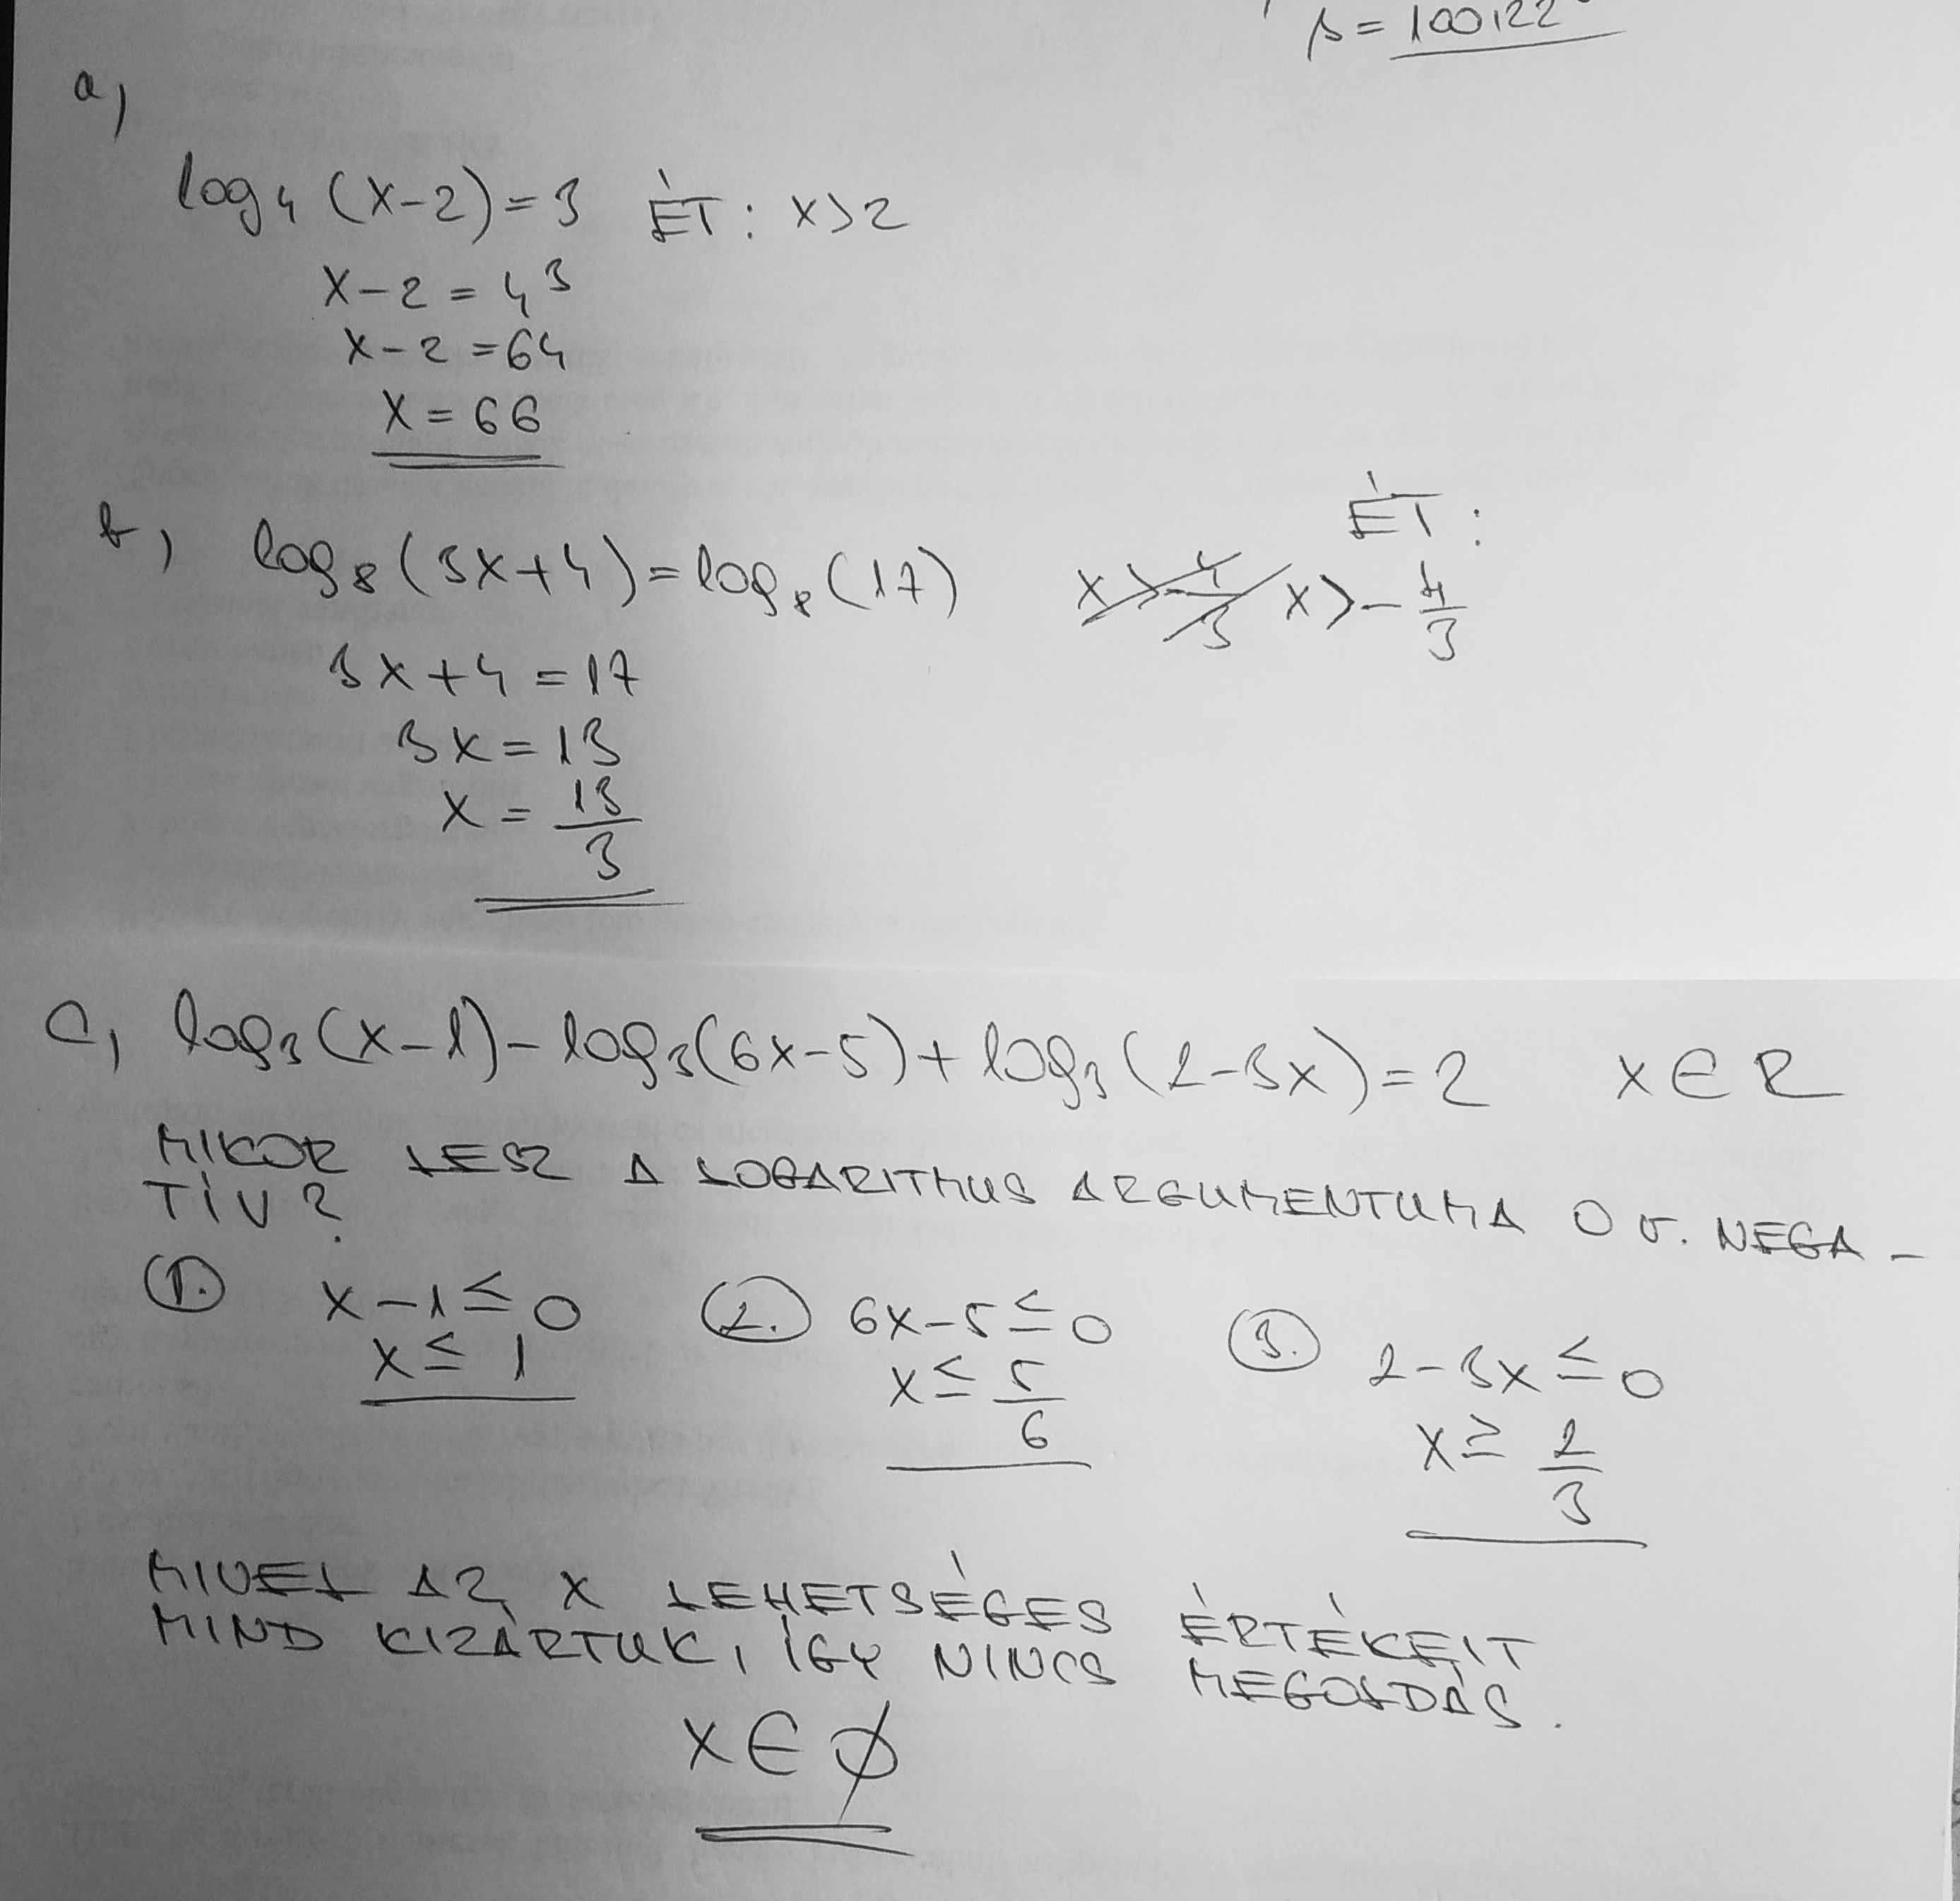 β = 100,22°
a,
log₄ (x-2) = 3 ÉT: x>2
x-2 = 4³
x-2 = 64
x = 66
b, log₈ (3x+4) = log₈ (17) x>-4/3 ÉT: x>-4/3
3x+4 = 17
3x = 13
x = 13/3
c, log₃(x-1) - log₃(6x-5) + log₃(2-3x) = 2 x∈R
MIKOR LESZ A LOGARITHUS ARGUMENTUMA 0 v. NEGA-
TÍV?
1. x-1≤0 2. 6x-5≤0 3. 2-3x≤0
x≤1 x≤5/6 x≥2/3
MIVEL AZ X LEHETSÉGES ÉRTÉKEIT
MIND KIZÁRTUK, ÍGY NINCS MEGOLDÁS.
x∈∅